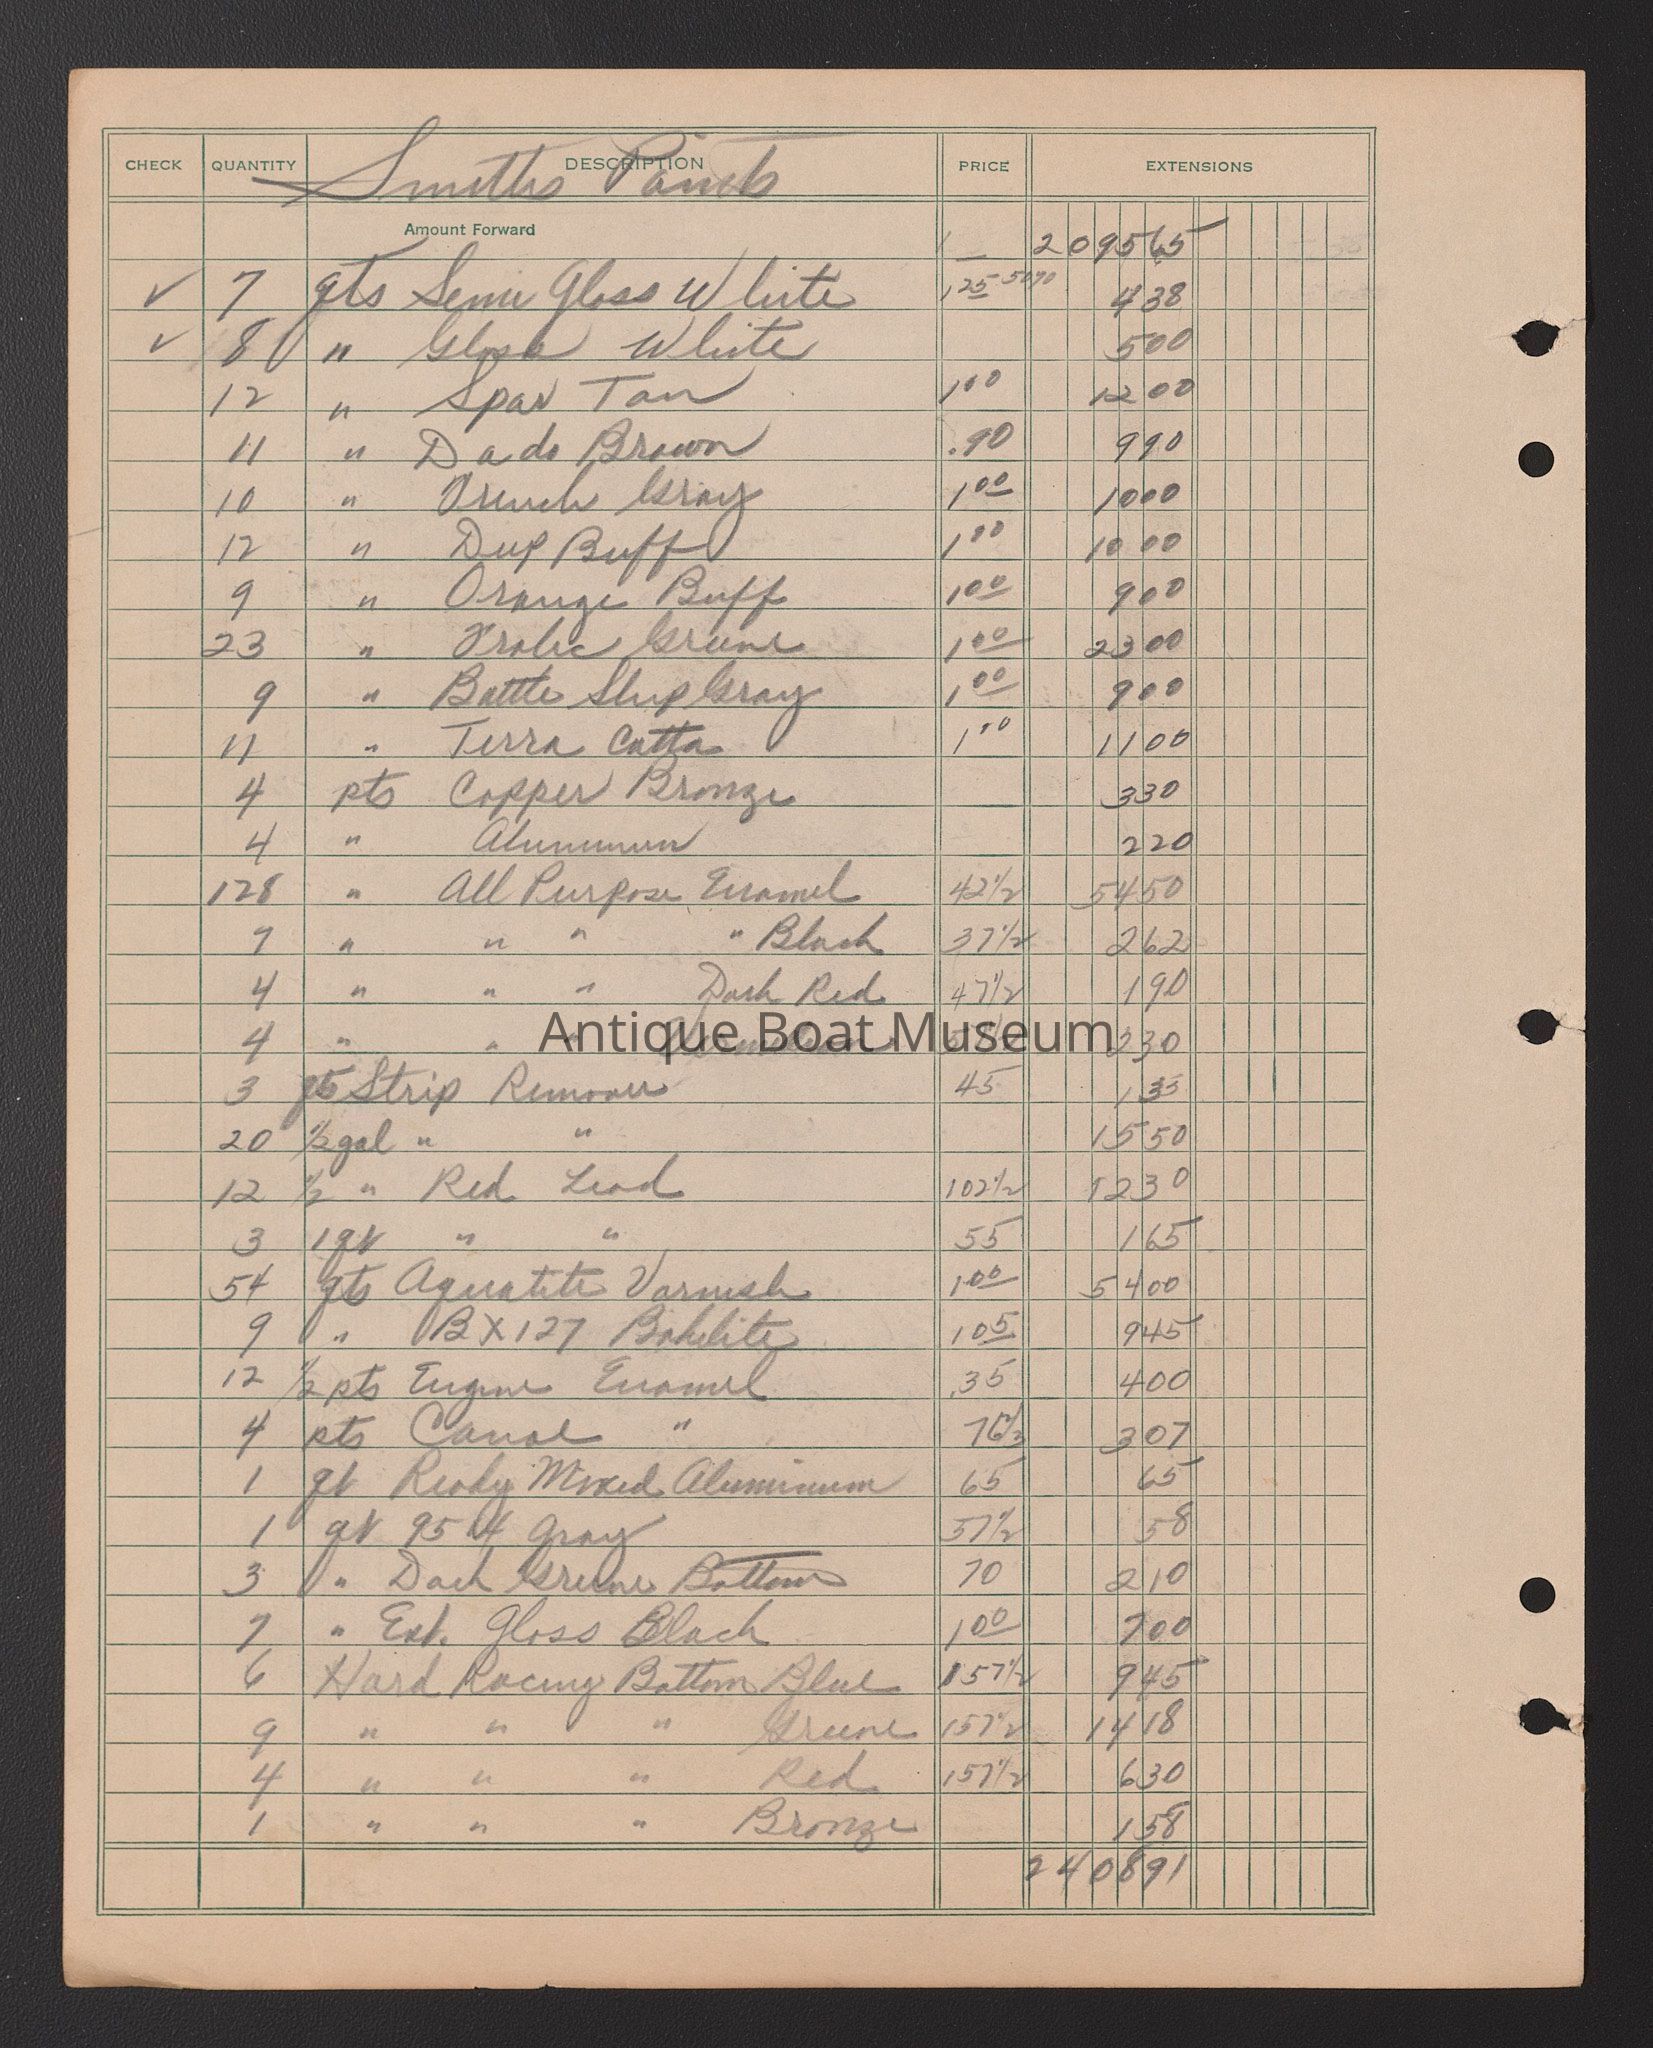 CHECK QUANTITY DESCRIPTION PRICE EXTENSIONS
Smiths Paints
Amount Forward 209565
✓ 7 qts Semi Gloss White 1 25 50% 438
✓ 8 " Gloss White 500
12 " Spar Tan 1 00 1200
11 " Dado Brown .90 990
10 " French Gray 1 00 1000
12 " Deep Buff 1 00 1000
9 " Orange Buff 1 00 900
23 " Frolic Greene 1 00 2300
9 " Battle Ship Gray 1 00 900
11 " Terra Cotta 1 00 1100
4 pts Copper Bronze 330
4 " Aluminum 220
128 " All Purpose Enamel 42 1/2 5450
7 " " " " Black 37 1/2 262
4 " " " Dark Red 47 1/2 190
4 " " " 230
Antique Boat Museum
3 qts Strip Remover 45 135
20 1/2 gal " " 1550
12 1/2 " Red Lead 102 1/2 1230
3 1 qt " " 55 165
54 qts Aquatite Varnish 1 00 5400
9 " BX127 Bakelite 1 05 945
12 1/2 pts Engine Enamel .35 400
4 pts Canoe " 307
1 qt Ready Mixed Aluminum 65 65
1 qt 954 Gray 57 1/2 58
3 " Dark Greene Bottom 70 210
7 " Ext. Gloss Black 1 00 700
6 Hard Racing Bottom Blue 157 1/2 945
9 " " " Greene 157 1/2 1418
4 " " " Red 157 1/2 630
1 " " " Bronze 158
240891